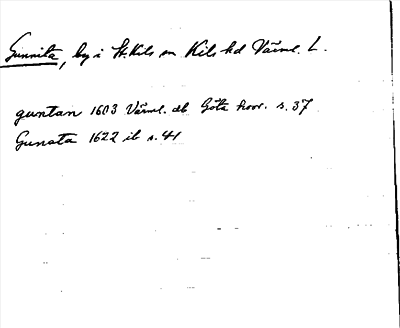 Gunnita, by i St. Kils sn Kils hd Värml. L.
guntan 1603 Värml. db Göta hovr. s. 37
Gunata 1622 ib s. 41